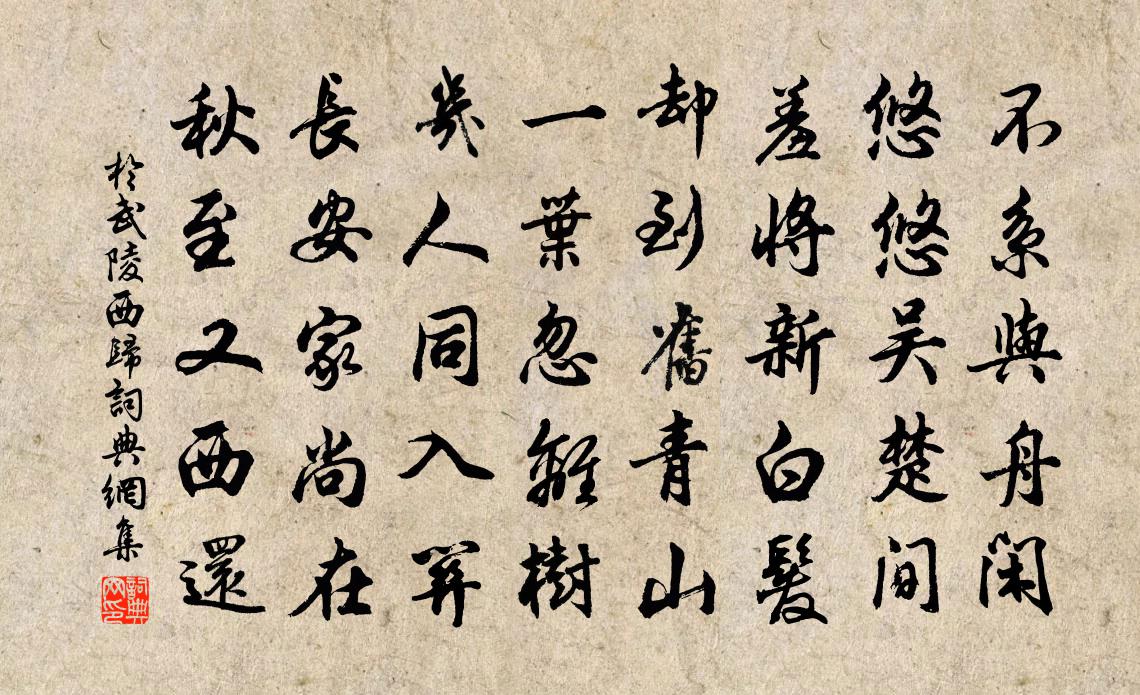 不系與舟閑
悠悠吴楚間
羞將新白髮
却到舊青山
一葉忽離樹
幾人同入關
長安家尚在
秋至又西還
於武陵西歸詞典網集
詞典网印